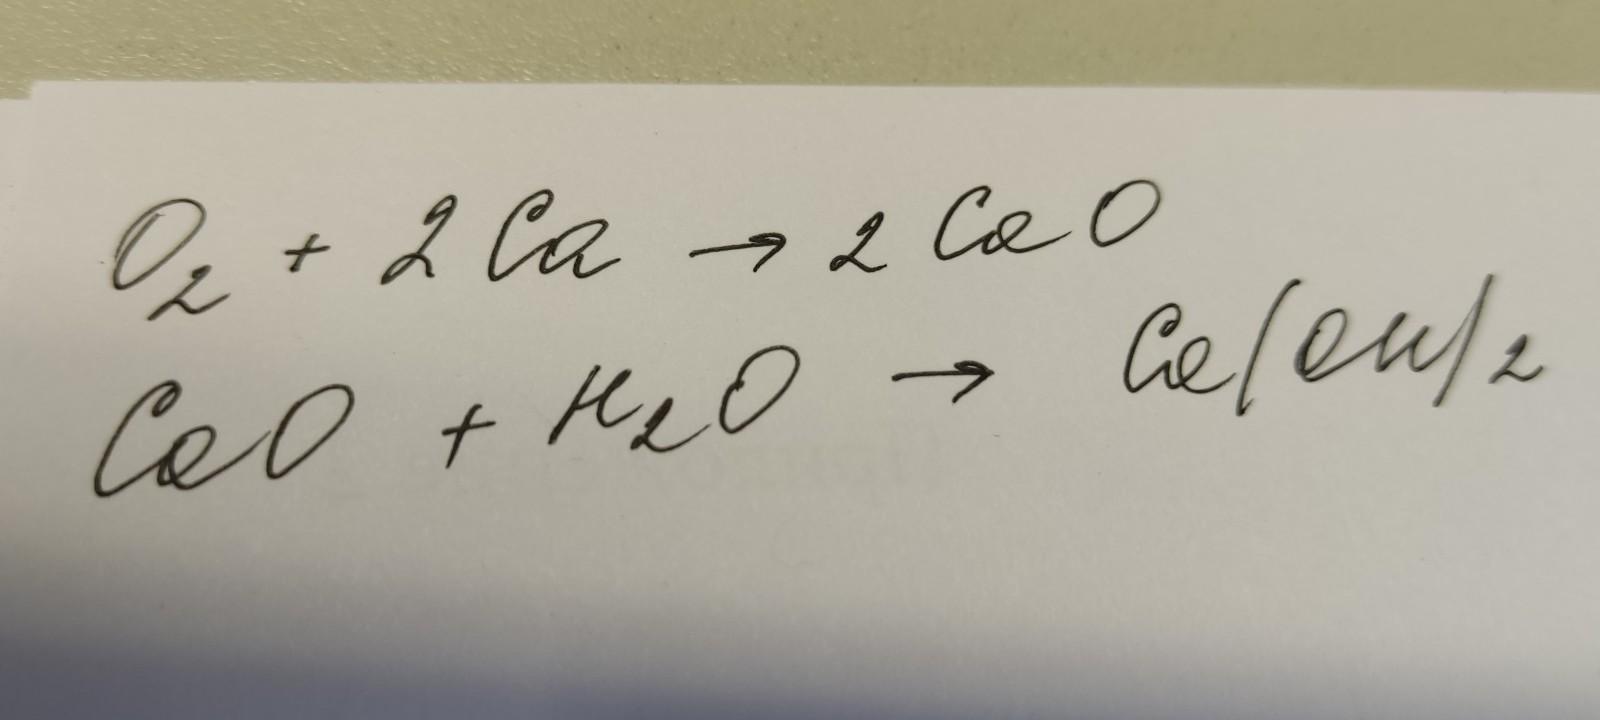 O₂ + 2Ca → 2CaO
CaO + H₂O → Ca(OH)₂